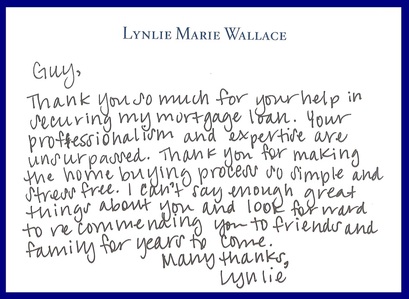 LYNLIE MARIE WALLACE
Guy,
Thank you so much for your help in
securing my mortgage loan. Your
proffessionalism and expertise are
unsurpassed. Thank you for making
the home buying process so simple and
stress free. I can't say enough great
things about you and look forward
to recommending you to friends and
family for years to come.
Many thanks,
Lynlie